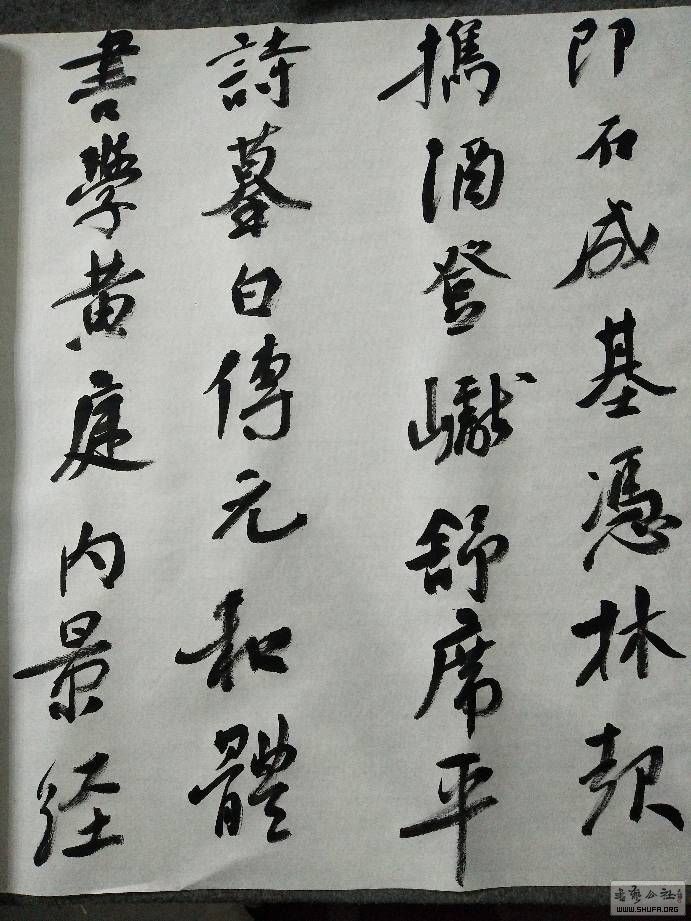 即石成基憑林起
攜酒登巘舒席平
詩摹白傅元和體
書學黄庭内景経
書藝公社
WWW.SHUFA.ORG